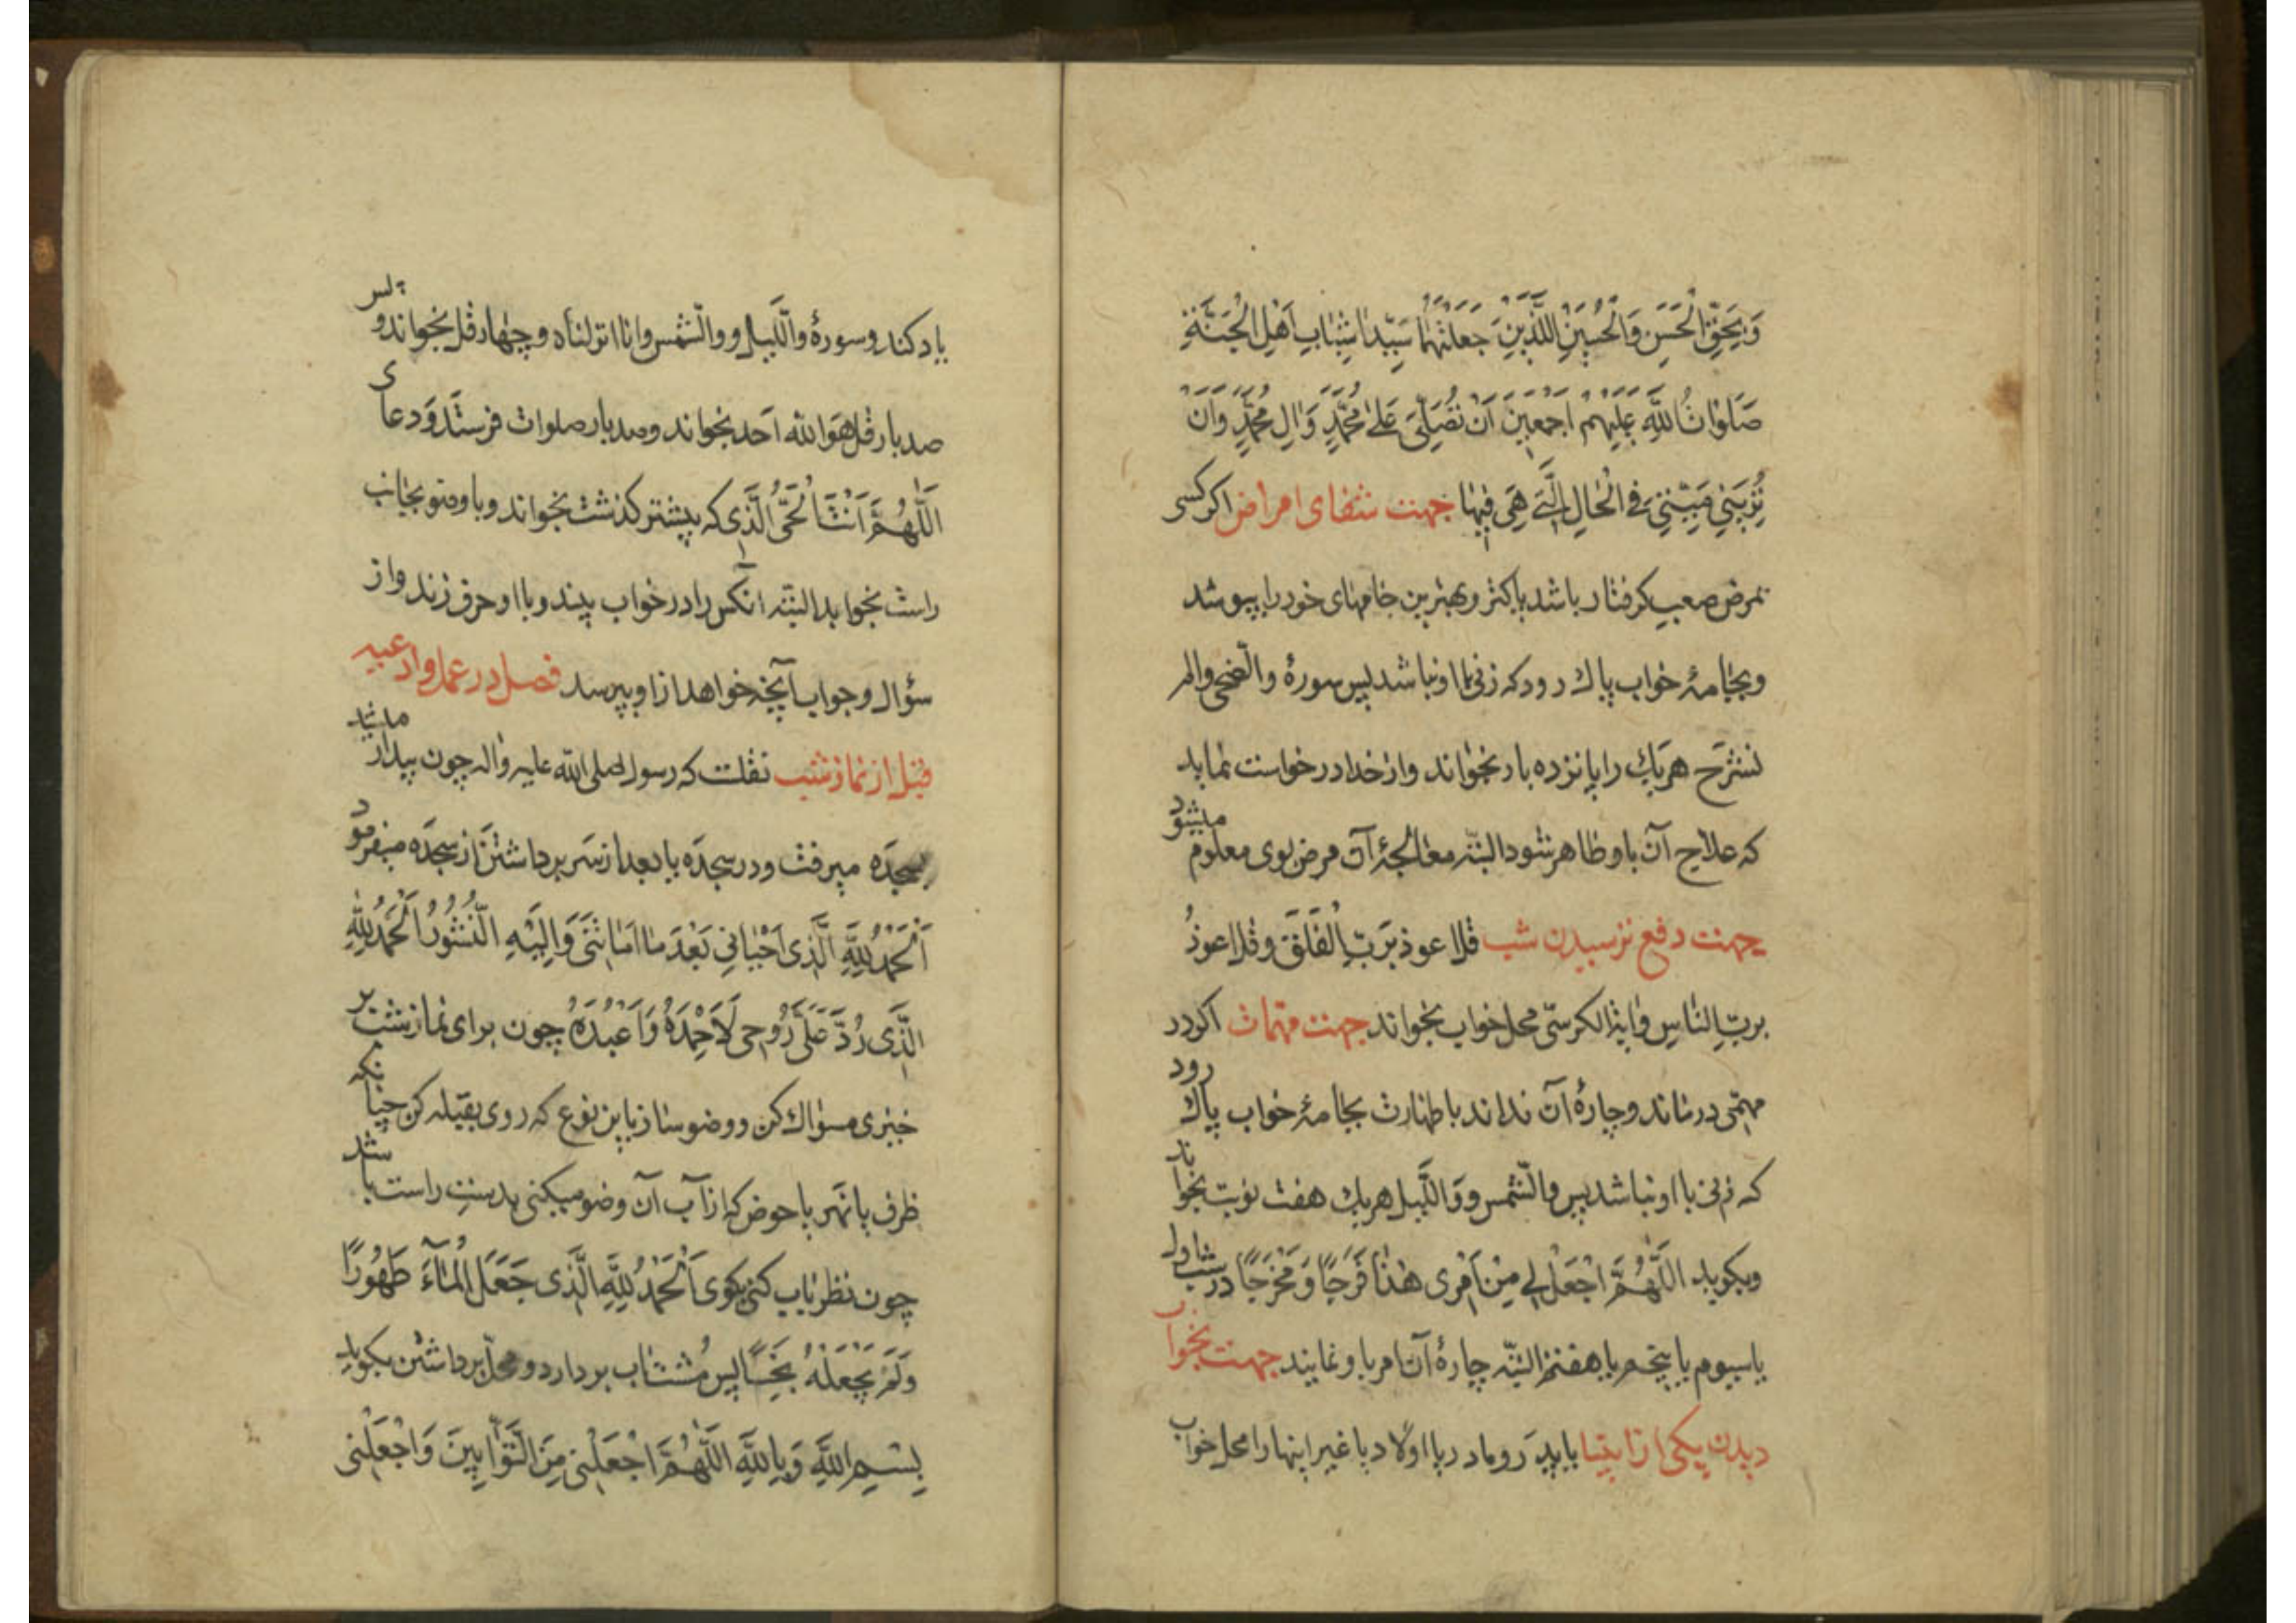 وَبِحَقِّ الْحَسَنِ وَالْحُسَيْنِ اللَّذَيْنِ جَعَلْتَهُمَا سَيِّدَا شَبَابِ اَهْلِ الْجَنَّةِ
صَلَوَاتُ اللَّهِ عَلَيْهِمْ اَجْمَعِينَ اَنْ تُصَلِّىَ عَلىٰ مُحَمَّدٍ وَالِ مُحَمَّدٍ وَاَنْ
تُرِيَنِي مَيِّتِي فِى الْحَالِ الَّتِي هِىَ فِيهَا جهت شفاى امراض اكر كسى
بمرض صعب كرفتار باشد پاكتر وبهترين جامهاى خود را بپوشد
وبجامهٔ خواب پاك رود كه زنى با او نباشد پس سورهٔ والضحى والم
نشرح هريك را پانزده بار بخواند واز خدا درخواست نمايد
كه علاج آن باو ظاهر شود البته معالجهٔ آن مرض بوى معلوم ميشود
جهت دفع ترسيدن شب قل اعوذ بربّ الفلق وقل اعوذُ
بربّ الناس واية الكرسّى محل خواب بخواند جهت مهمات اكر در
مهمّى درماند وچارهٔ آن نداند باطهارت بجامهٔ خواب پاك رود
كه زنى با او نباشد پس والشّمس وواللَّيل هريك هفت نوبت بخواند
وبكويد اَللَّهُمَّ اجْعَلْ لِي مِنْ اَمْرِى هٰذَا فَرَجًا وَمَخْرَجًا در شب اول
يا سيوم يا پنجم يا هفتم البتّه چارهٔ آن امر باو نمايند جهت بخواب
ديدن يكى از ابنيا يا پدر ومادر يا اولاد يا غير اينها را محل خواب
ياد كند وسورهٔ واللّيل ووالشّمس وانا انزلناه وچهار قل بخواند وپس
صد بار قل هو الله اَحد بخواند وصد بار صلوات فرستد ودعاى
اَللَّهُمَّ اَنْتَ الْحَىُّ الَّذِى كه پيشتر كذشت بخواند وباوضو بجانب
راست بخوابد البته آنكس را در خواب بيند وبا او حرف زند واز
سؤال وجواب آنچه خواهد از او بپرسد فصل در عمل وادعيه
قبل از نماز شب نقلست كه رسول صلى الله عليه واله چون بيدار ميشد
بسجده ميرفت ودر سجده يا بعد از سر برداشتن از سجده ميفرمود
اَلْحَمْدُ لِلَّهِ الَّذِى اَحْيَانِي بَعْدَ مَا اَمَاتَنِى وَاِلَيْهِ النُّشُورُ اَلْحَمْدُ لِلَّهِ
الَّذِى رُدَّ عَلَىَّ رُوحِى لِاَحْمَدَهُ وَاَعْبُدَهُ چون براى نماز شب بر
خيزى مسواك كن ووضو ساز باين نوع كه روى بقبله كن چنانكه
ظرف يا نهر يا حوض كه از آب آن وضو ميكنى بدست راست باشد
چون نظر بآب كنى بكوى اَلْحَمْدُ لِلَّهِ الَّذِى جَعَلَ الْمَآءَ طَهُورًا
وَلَمْ يَجْعَلْهُ نَجِسًا پس مُشت آب بردارد ومحلّ برداشتن بكويد
بِسْمِ اللَّهِ وَبِاللَّهِ اَللَّهُمَّ اجْعَلْنِى مِنَ التَّوَّابِينَ وَاجْعَلْنِى